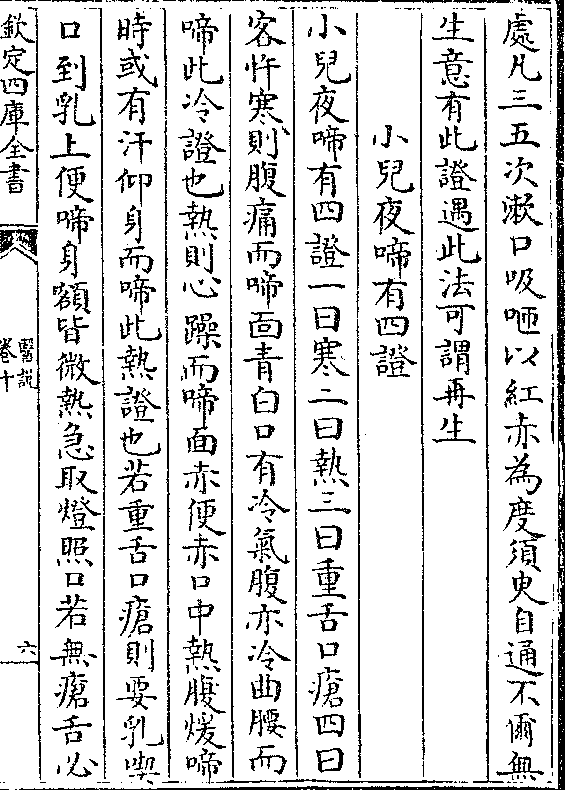 處凡三五次漱口吸咂以紅赤為度須臾自通不爾無
生意有此證遇此法可謂再生
小兒夜啼有四證
小兒夜啼有四證一曰寒二曰熱三曰重舌口瘡四曰
客忤寒則腹痛而啼面青白口有冷氣腹亦冷曲腰而
啼此冷證也熱則心躁而啼面赤便赤口中熱腹煖啼
時或有汗仰身而啼此熱證也若重舌口瘡則要乳喫
口到乳上便啼身額皆微熱急取燈照口若無瘡舌必
欽定四庫全書
醫説
卷十
六